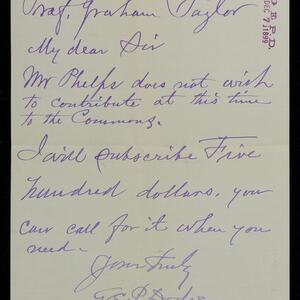 Prof. Graham Taylor
DEC 7 1899
My dear Sir
Mr Phelps does not wish
to contribute at this time
to the Commons.
I will subscribe Five
hundred dollars. you
can call for it when you
need.
Yours truly